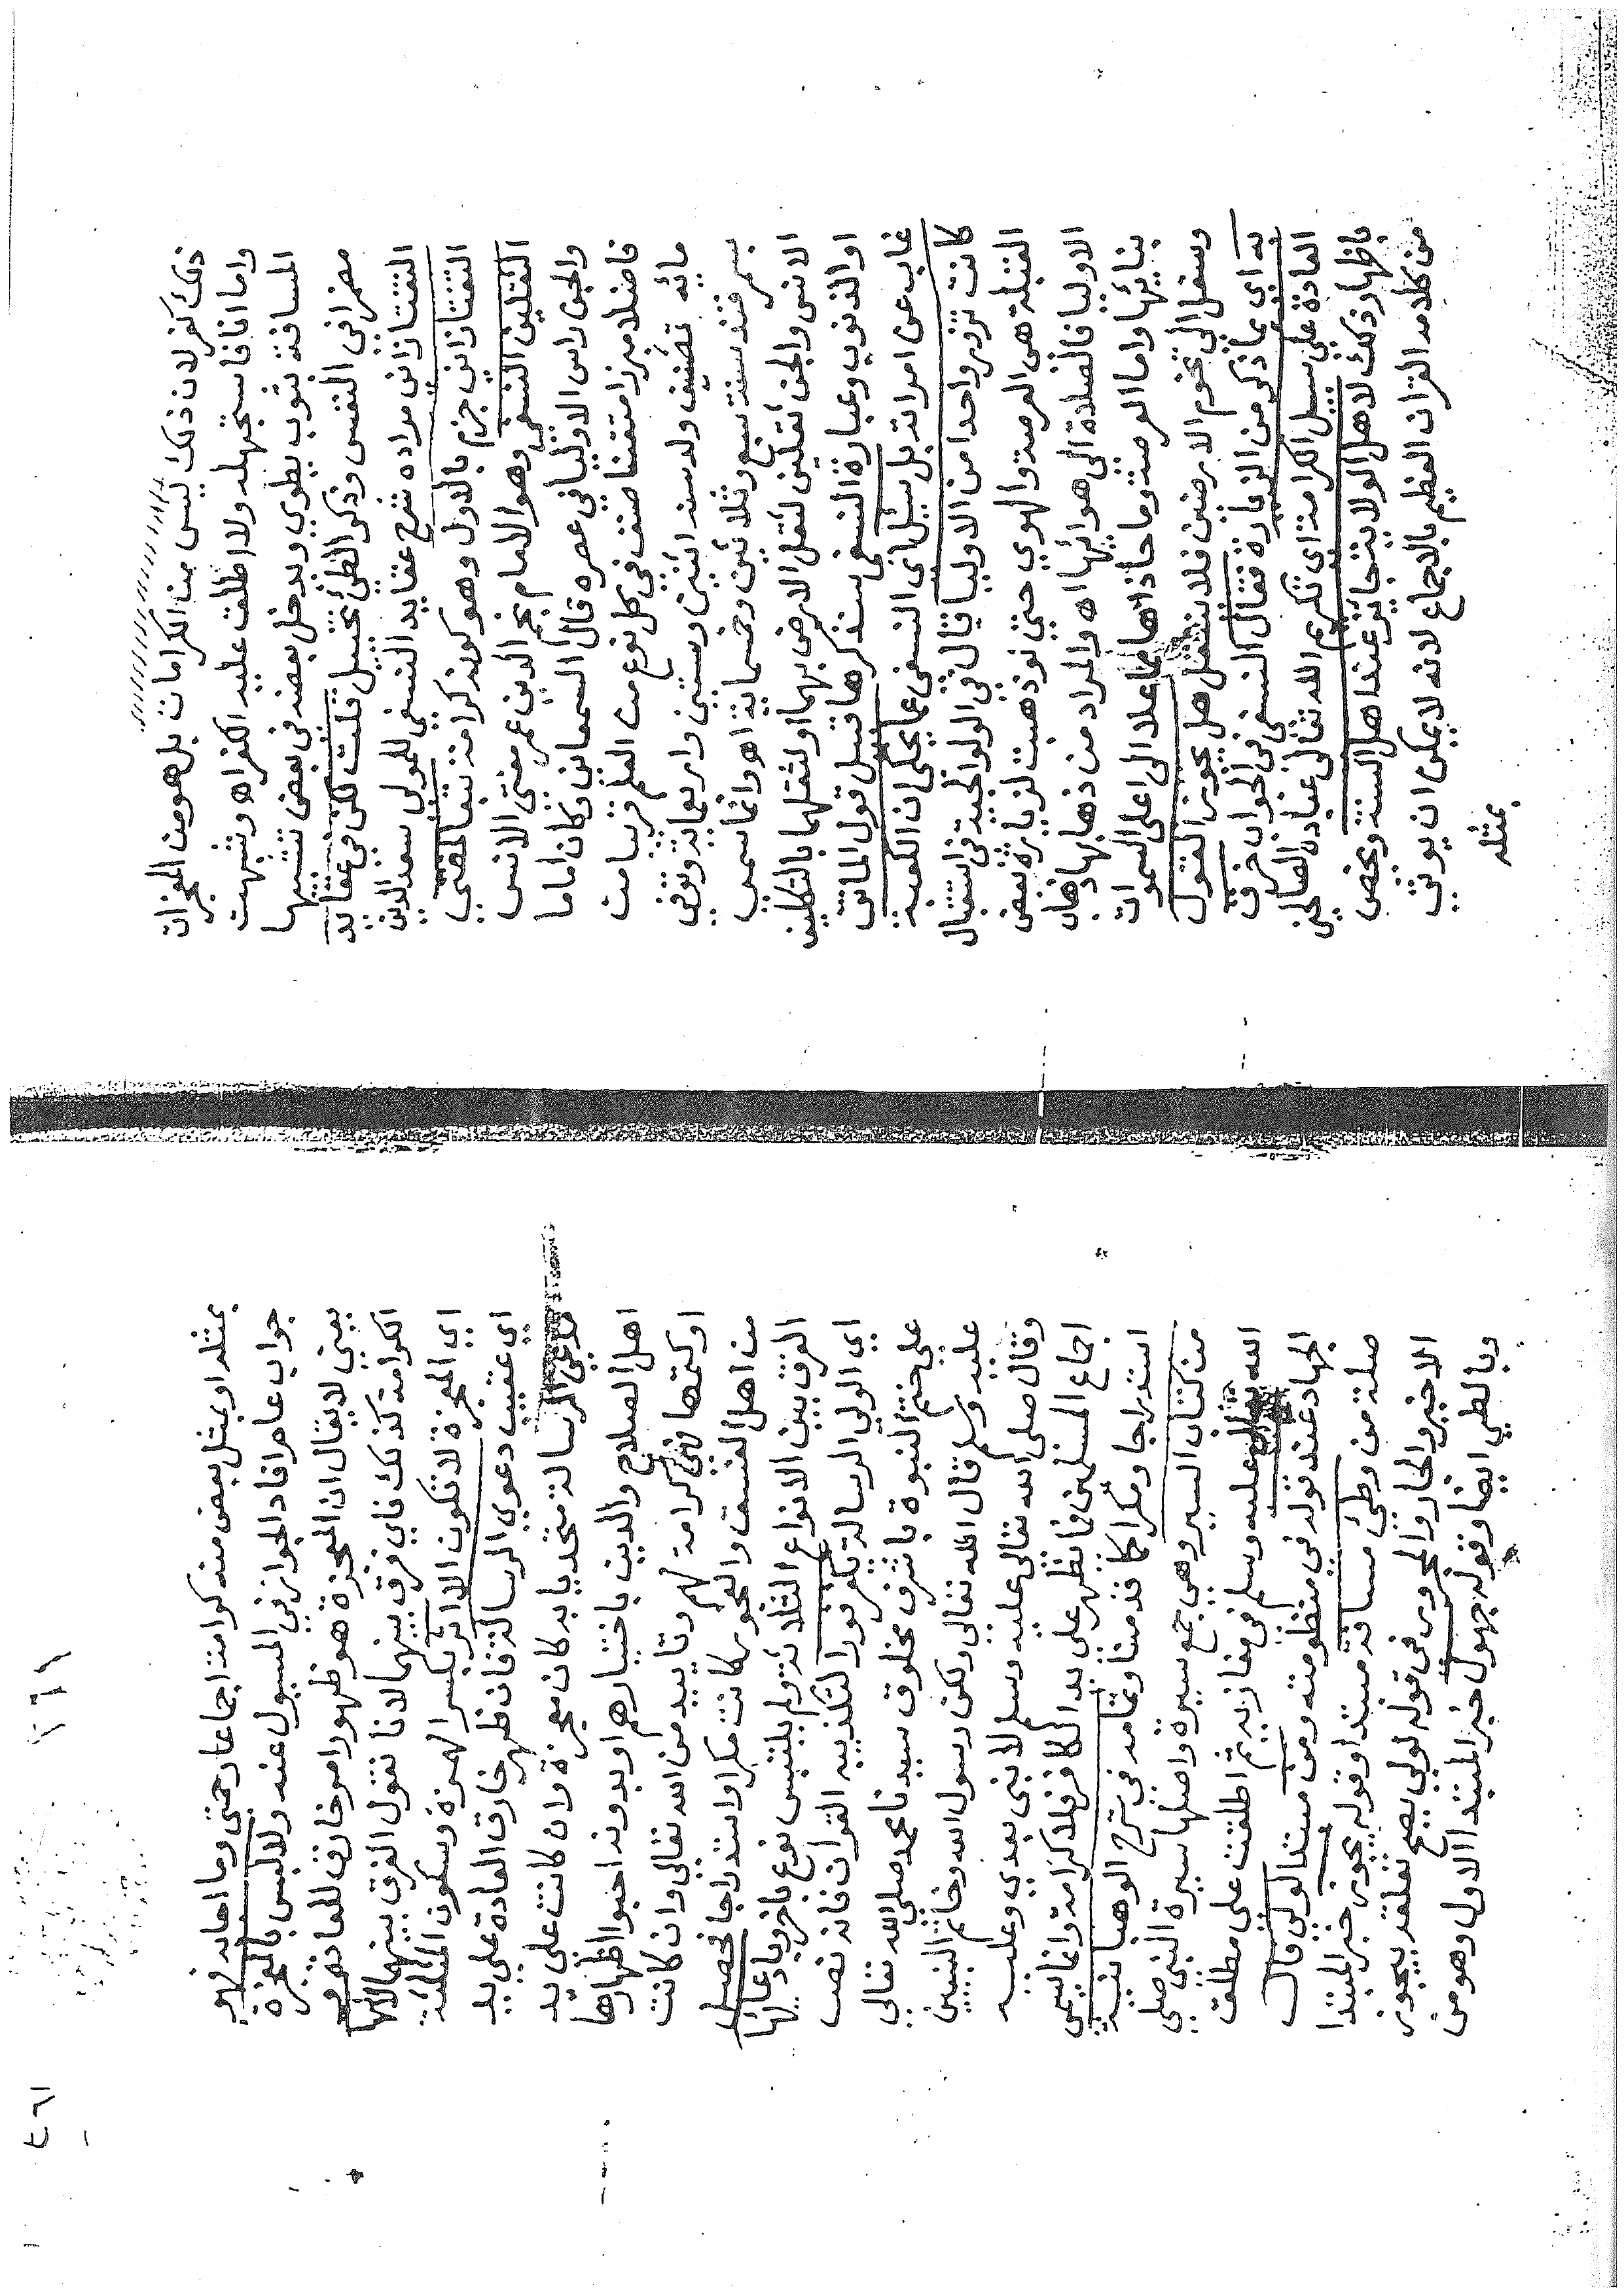 ذلك كفر لان ذلك ليس من الكرامات بل هو من المعجزات
واما انا فاستجهله ولا اطلق عليه الكفر اه وشبهت
المسافة بثوب يطوي ويدخل بعضه في بعض تشبيها
مضمرا في النفس وذكر الطي تخييل قلت لكن في عقايد
التفتازاني مراده شرح عقايد النسفي للمولى سعد الدين
التفتازاني جزم بالاول وهو كونه كرامة تبعا لمفتي
الثقلين النسفي وهو الامام نجم الدين عمر مفتي الانس
والجن راس الاوليا في عصره قال السمعاني وكان اماما
فاضلا مبرزا متقنا صنف في كل نوع من العلم قريبا من
مائة تصنيف ولد سنة اثنين وستين واربعماية وتوفي
بسمرقند سنة سبع وثلاثين وخمسماية اه وانما سمي
الانس والجن ثقلين لثقل الارض بهما او لثقلهما بالتكليف
او الذنوب وعبارة النسفي سنذكرها قبيل قول الماتن
غاب عن امراته بل سئل اي النسفي عما يحكى ان الكعبة
كانت تزور واحدا من الاوليا قال في الولوالجية في استقبال
القبلة هي العرصة والهوي حتى لو ذهبت لزيارة بعض
الاوليا فالصلاة الى هوائها اه والمراد من ذهابها ذهاب
بنائها واما العرصة وما حاذاها مما علا الى اعلى السموات
وسفل الى تخوم الارضين فلا ينتقل هل يجوز القول
به اي بما ذكر من الزيارة فقال النسفي في الجواب خرق
العادة على سبيل الكرامة اي تكريم الله تعالى عباده الصالحين
باظهار ذلك لاهل الولاية جايز عند اهل السنة ويخص
من كلامه القران العظيم بالاجماع لانه لا يمكن ان يوتى
بمثله
بمثله او بمثل بعض منه كرامة اجماعا رحمتي وما اجاب به فهو
جواب عام افاد الجواز في المسيول عنه ولا لبس بالمعجزة
يعني لا يقال ان المعجزة هو ظهور امر خارق للعادة و
الكرامة كذلك فاي فرق بينهما لانا نقول الفرق بينهما لانها
اي المعجزة لا تكون الا اثر بكسر الهمزة وسكون المثلثة
اي عقيب دعوي الرسالة فان ظهر خارق العادة على يد
مدعي الرسالة متحديا به كان معجزة وان كانت على يد
اهل الصلاح والدين باختيارهم او بدونه احبوا اظهارها
او كتمها فهي كرامة لهم وتاييد من الله تعالى وان كانت
من اهل الفسق والفجور كانت مكرا واستدراجا فحصل
الفرق بين الانواع الثلاثة ولم يلتبس نوع باخر وبادعائها
اي الولي الرسالة يكفر فورا لتكذيبه القران فانه نص
على ختم النبوة باشرف مخلوق سيدنا محمد صلى الله تعالى
عليه وسلم قال الله تعالى ولكن رسول الله وخاتم النبيين
وقال صلى الله تعالى عليه وسلم لا نبي بعدي وعليه
اجماع المسلمين فما يظهر على يد الكافر فلا كرامة وانما يسمي
استدراجا ومكرا كما قدمنا وتمامه في شرح الوهبانية
من كتاب السير وهي جمع سيرة واصلها سيرة النبي صلى
الله تعالى عليه وسلم في مغازيه ثم اطلقت على مطلق
الجهاد عند قوله في منظومته ومن مسئلة لولي قال
صلة من وطئ مسافة مبتدا وقوله يجوز خبر المبتدا
الاخير والجار والمجرور في قوله لولي يصح تعلقه بيجوز
وبالطي ايضا وقوله جهول خبر المبتدا الاول وهو من